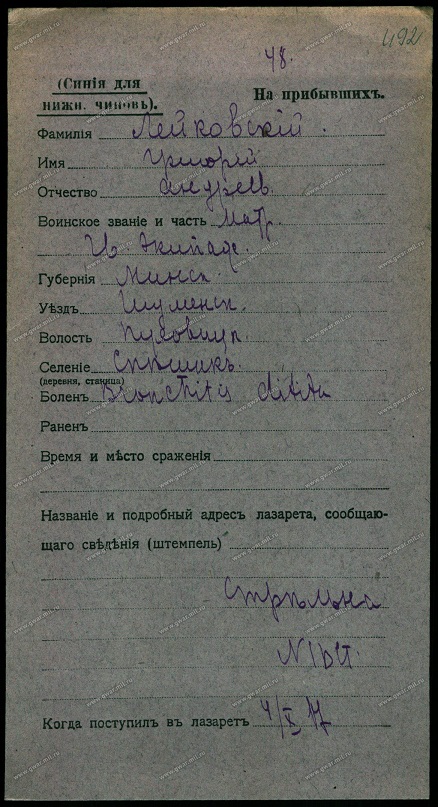 492
48.
(Синія для
нижн. чиновъ).
На прибывшихъ.
Фамилія Лейковскій.
Имя Григорій
Отчество Андреев.
Воинское званіе и часть Матр.
Гв. Экипаж.
Губернія Минск.
Уѣздъ Игуменск.
Волость Пуховицк.
Селеніе
(деревня, станица)
Боленъ Bronchitis
Раненъ
Время и мѣсто сраженія
Названіе и подробный адресъ лазарета, сообщаю-
щаго свѣдѣнія (штемпель)
Стрѣльна
Когда поступилъ въ лазаретъ 4/X 17
www.gwar.mil.ru